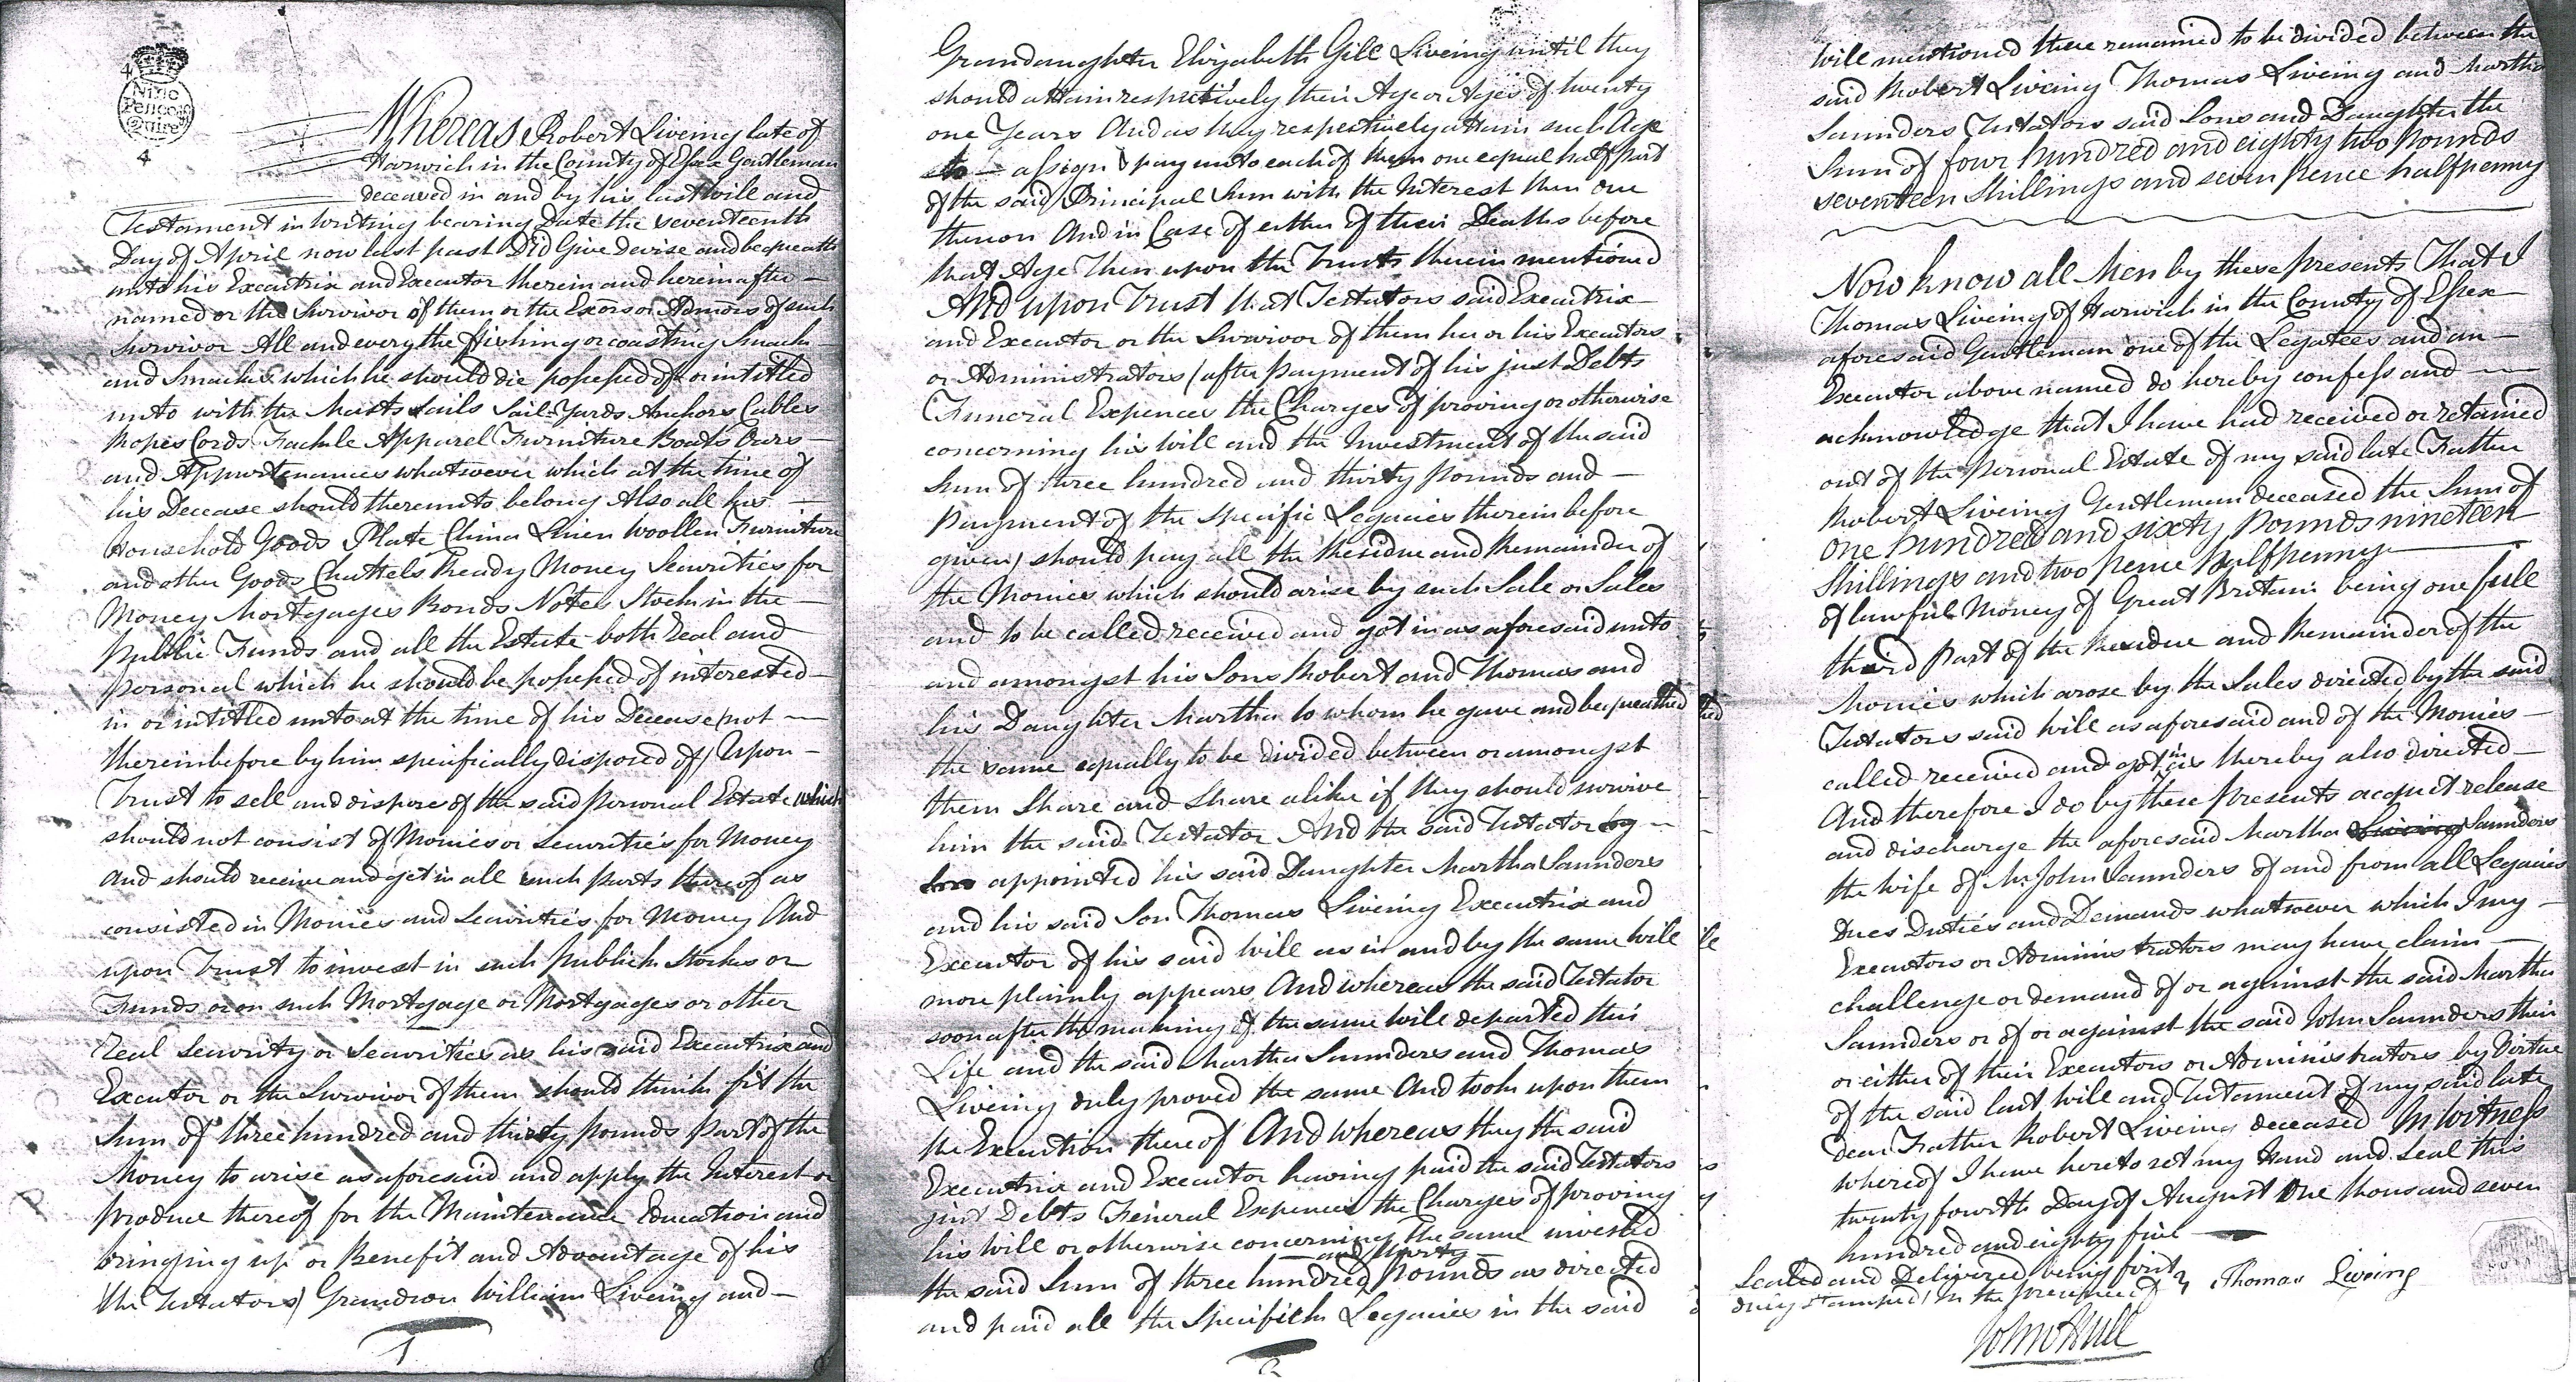 4
Nine
Pence p
Quire
4
Whereas Robert Liveing late of
Harwich in the County of Essex Gentleman
deceased in and by his last will and
Testament in writing bearing Date the seventeenth
Day of April now last past Did Give Devise and bequeath
unto his Executrix and Executor therein and herein after —
named or the Survivor of them or the Exōrs or Admōrs of such
Survivor All and every the fishing or coasting Smack
and Smacks which he should die possessed of or intitled
unto with the Masts Sails Sail-Yards Anchors Cables
Ropes Cords Tackle Apparel Furniture Boats Oars —
and Appurtenances whatsoever which at the time of
his Decease should thereunto belong Also all his —
Household Goods Plate China Linen Woollen Furniture
and other Goods Chattels Ready Money Securities for
Money Mortgages Bonds Notes Stock in the —
Public Funds and all the Estate both real and
personal which he should be possessed of interested —
in or intitled unto at the time of his Decease (not —
thereinbefore by him specifically disposed of) Upon —
Trust to sell and dispose of the said personal Estate which
should not consist of Monies or Securities for Money
and should receive and get in all such parts thereof as
consisted in Monies and Securities for Money And
upon Trust to invest in such Publick Stocks or
Funds or on such Mortgage or Mortgages or other
Real Security or Securities as his said Executrix and
Executor or the Survivor of them should think fit the
Sum of three hundred and thirty pounds part of the
Money to arise as aforesaid and apply the Interest or
produce thereof for the Maintenance Education and
bringing up or Benefit and Advantage of his
(the Testators) Grandson William Liveing and —
1
Grandaughter Elizabeth Gill Liveing until they
should attain respectively their Age or Ages of twenty
one Years And as they respectively attain such Age
to — assign & pay unto each of them one equal half part
of the said Principal Sum with the Interest then due
thereon And in Case of either of their Deaths before
that Age Then upon the Trusts therein mentioned
And upon Trust that Testators said Executrix —
and Executor or the Survivor of them her or his Executors
or Administrators (after payment of his just Debts
Funeral Expences the Charges of proving or otherwise
concerning his will and the Investment of the said
Sum of three hundred and thirty pounds and —
payment of the specific Legacies therein before
given) should pay all the Residue and Remainder of
the Monies which should arise by such Sale or Sales
and to be called received and got in as aforesaid unto
and amongst his Sons Robert and Thomas and
his Daughter Martha to whom he gave and bequeathed
the same equally to be divided between or amongst
them Share and Share alike if they should survive
him the said Testator And the said Testator
appointed his said Daughter Martha Saunders
and his said Son Thomas Liveing Executrix and
Executor of his said will as in and by the same will
more plainly appears And whereas the said Testator
soon after the making of the same will departed this
Life and the said Martha Saunders and Thomas
Liveing duly proved the same And took upon them
the Execution thereof And whereas they the said
Executrix and Executor having paid the said Testators
just Debts Feneral Expences the Charges of proving
his will or otherwise concerning the same invested
and thirty
the said Sum of three hundred pounds as directed
and paid all the Specifick Legacies in the said
2
will mentioned there remained to be divided between the
said Robert Liveing Thomas Liveing and Martha
Saunders Testators said Sons and Daughter the
Sum of four hundred and eighty two pounds
seventeen Shillings and seven pence halfpenny
Now know all Men by these presents That I
Thomas Liveing of Harwich in the County of Essex
aforesaid Gentleman one of the Legatees and an —
Executor above named do hereby confess and —
acknowledge that I have had received or retained
out of the personal Estate of my said late Father
Robert Liveing Gentleman deceased the Sum of
one hundred and sixty pounds nineteen
Shillings and two pence halfpenny —
of lawful Money of Great Britain being one full
third part of the Residue and Remainder of the
Monies which arose by the Sales directed by the said
Testators said will as aforesaid and of the Monies —
called received and got in as thereby also directed —
And therefore I do by these presents acquit release
and discharge the aforesaid Martha Liveing Saunders
the wife of Mr John Saunders of and from all Legacies
Dues Duties and Demands whatsoever which I my —
Executors or Administrators may have claim —
challenge or demand of or against the said Martha
Saunders or of or against the said John Saunders their
or either of their Executors or Administrators by Virtue
of the said last will and Testament of my said late
dear Father Robert Liveing deceased In Witness
whereof I have hereto set my Hand and Seal this
twenty fourth Day of August One thousand seven
hundred and eighty five —
Sealed and Delivered being first
duly stamped in the presence of
Thomas Liveing
John Hull